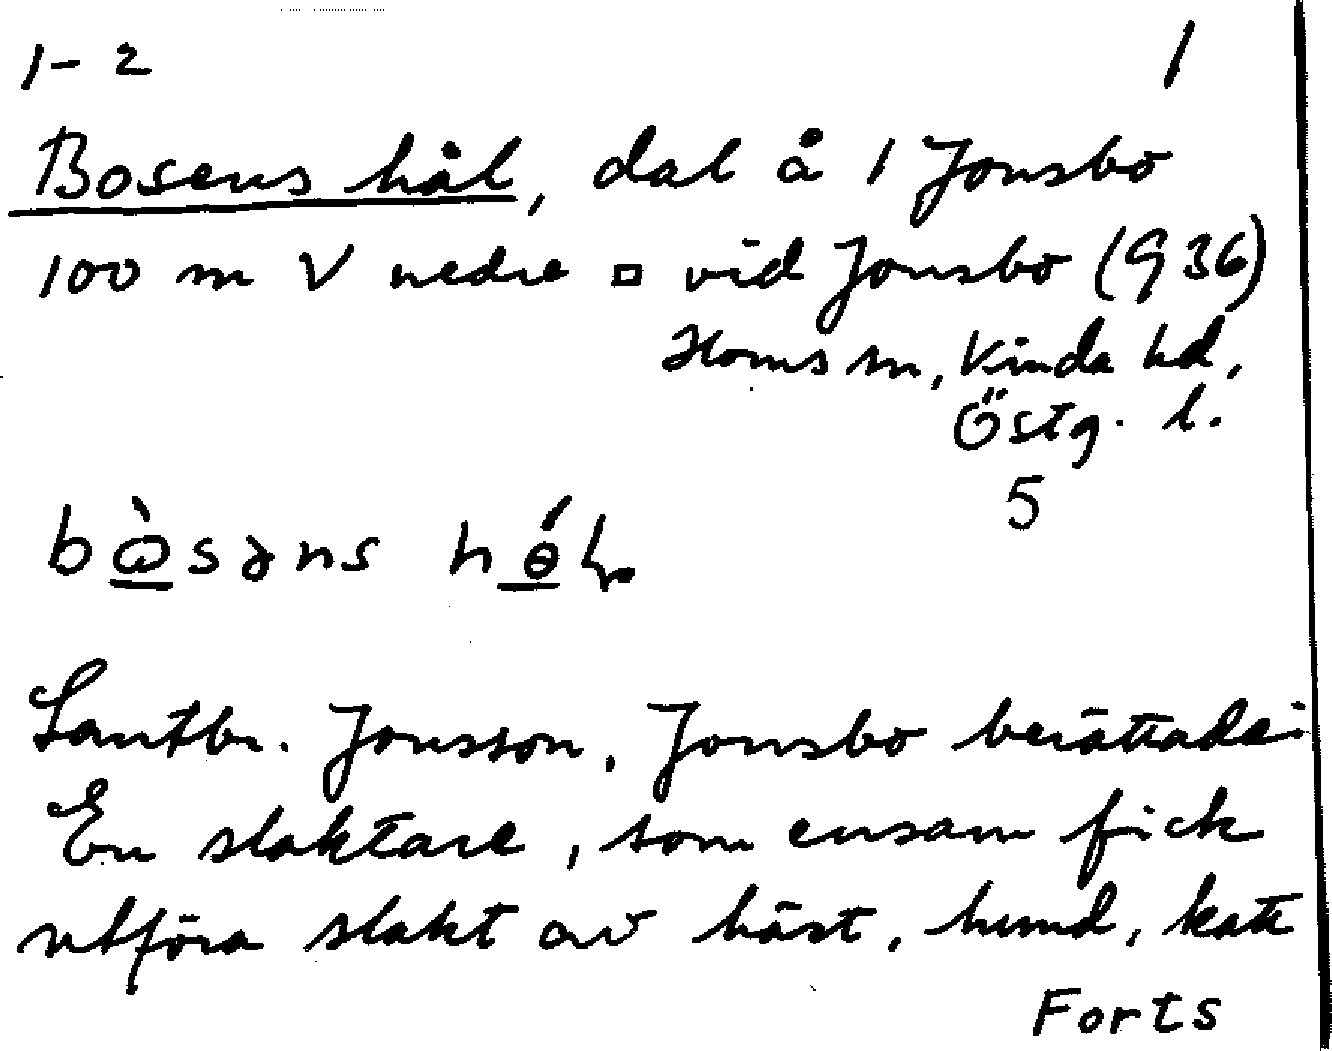 1-2 1
Bosens hål, dal å 1 Jonsbo
100 m V nedre □ vid Jonsbo (936)
Horns sn, Kinda hd,
Östg. l.
5
Lantbr. Jonsson, Jonsbo berättade:
En slaktare, som ensam fick
utföra slakt av häst, hund, katt
Forts